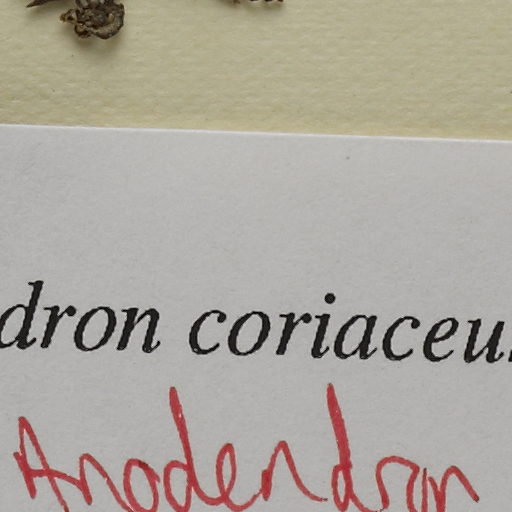 dron coriaceu
Anodendron